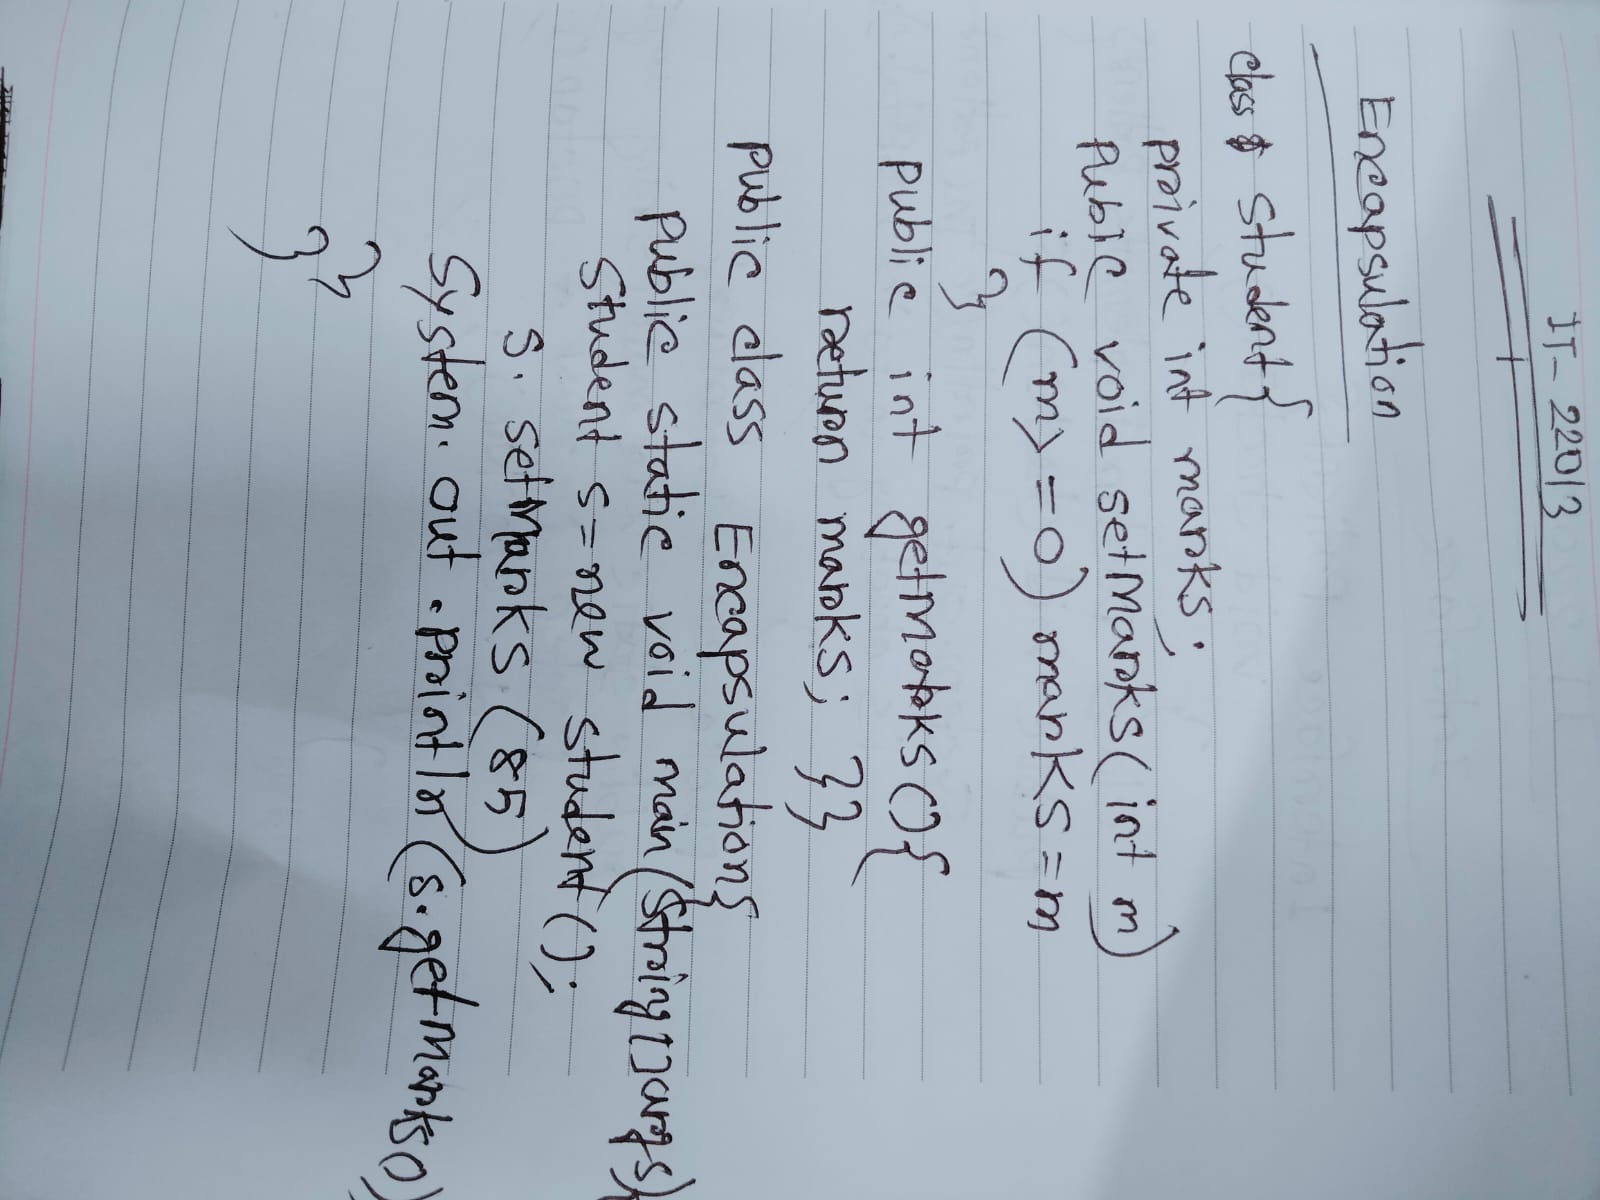 IT-22013
Encapsulation
class Student{
private int marks;
Public void setMarks(int m)
if (m>=0) marks=m
}
public int getMarks(){
return marks; }}
public class Encapsulation{
public static void main(String[]args)
Student s=new student();
s.setMarks(85)
System.out.println(s.getMarks())
}}
}